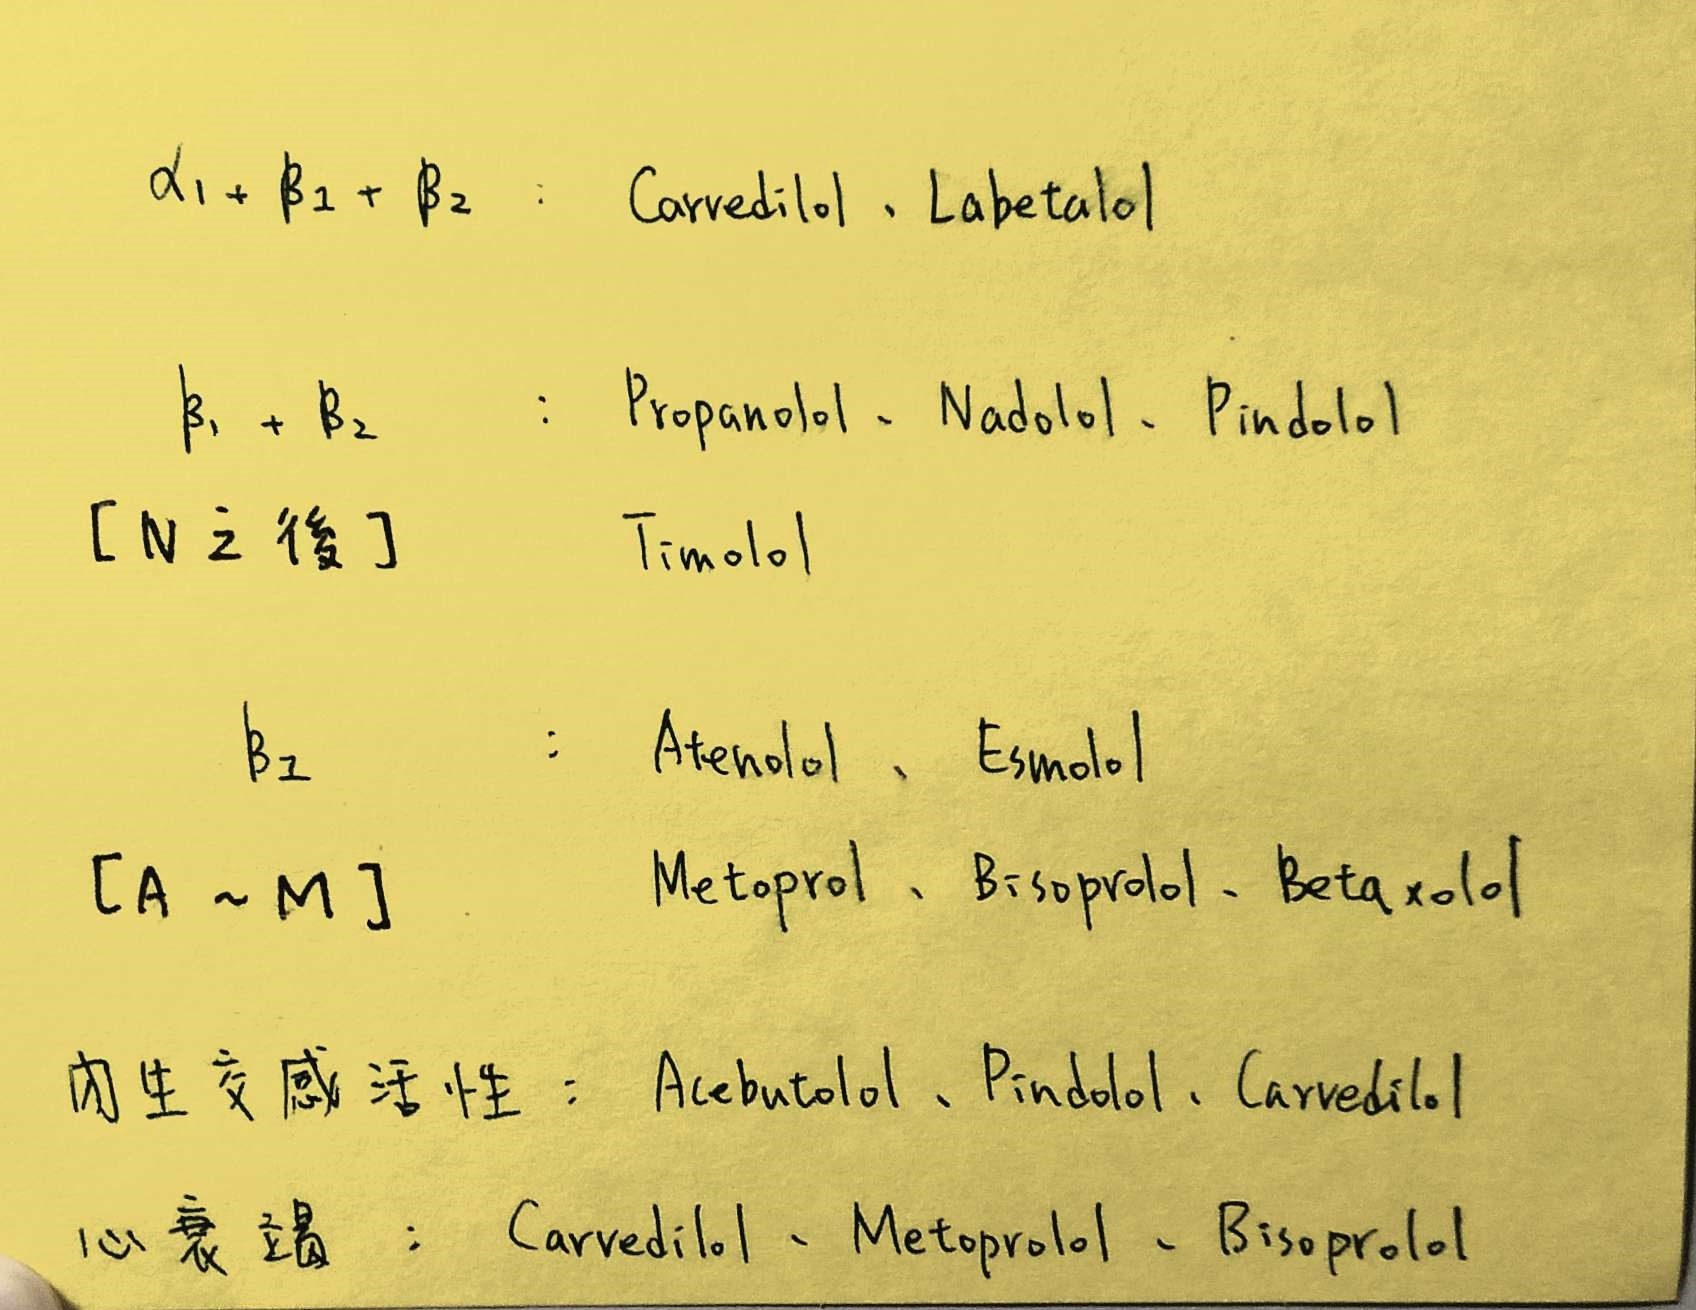 α1 + β1 + β2 : Carvedilol、Labetalol
β1 + β2 : Propanolol、Nadolol、Pindolol
[N之後] Timolol
β1 : Atenolol、Esmolol
[A~M] Metoprol、Bisoprolol、Betaxolol
內生交感活性：Acebutolol、Pindolol、Carvedilol
心衰竭：Carvedilol、Metoprolol、Bisoprolol